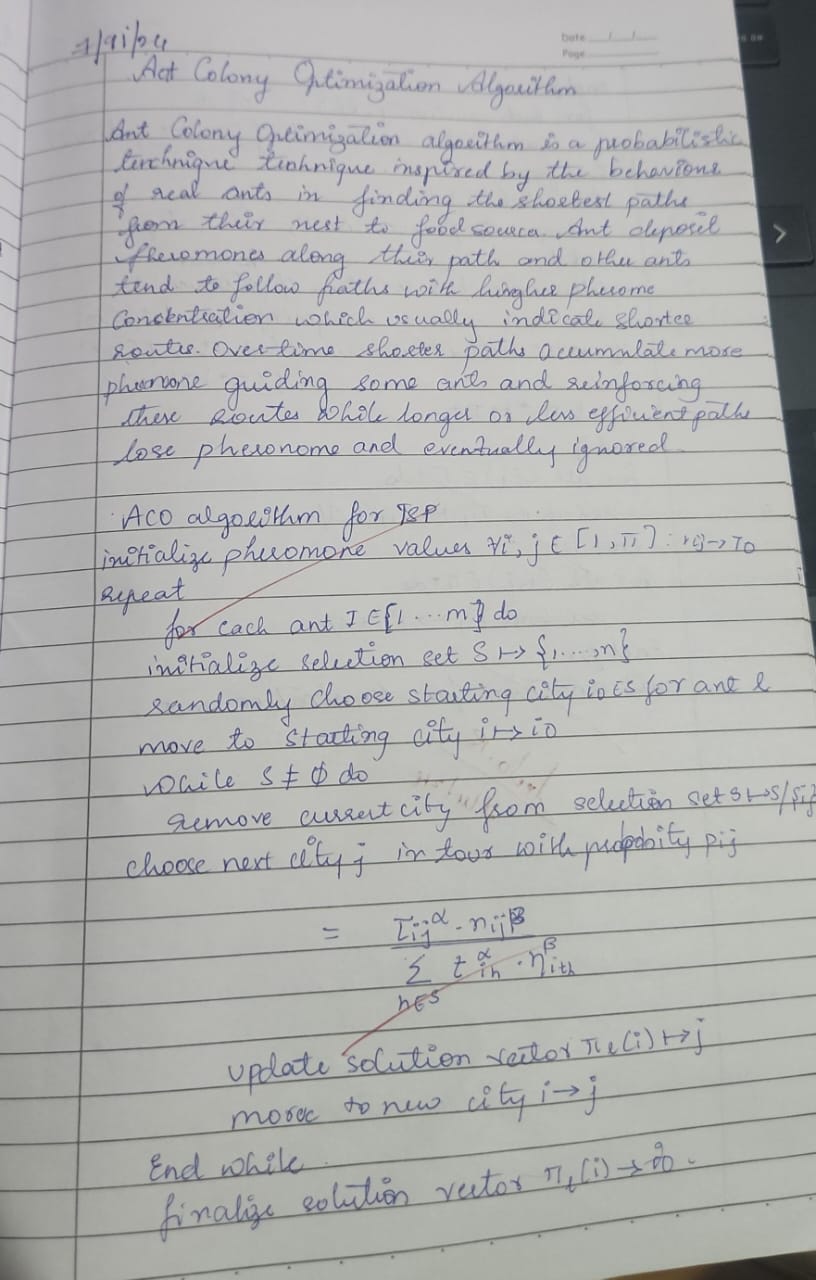 Date / /
Page
Ant Colony Optimization Algorithm
Ant Colony Optimization algorithm is a probabilistic
technique technique inspired by the behaviour
of real ants in finding the shortest paths
from their nest to food source. Ant deposit
pheromones along their path and other ants
tend to follow paths with hingher pherome
Concentration which usually indicate shorter
routes. Over time shorter paths accumulate more
pheromone guiding some ants and reinforcing
these routes while longer or less efficient paths
lose pheronome and eventually ignored
ACO algorithm for TSP
initialize pheromone values ∀i, j ∈ [1, n] : τij → τ0
repeat
for each ant l ∈ {1 ... m} do
initialize selection set S ↦ {1,...,n}
randomly choose starting city i0 ∈ S for ant l
move to starting city i ↦ i0
while S ≠ ∅ do
remove current city from selection set S ↦ S/{i}
choose next city j in tour with probability pij
= τij^α . nij^β
Σ t^α ih . η^β ith
h∈S
update solution vector πl(i) ↦ j
move to new city i → j
End while
finalize solution vector πl(i) → i0.